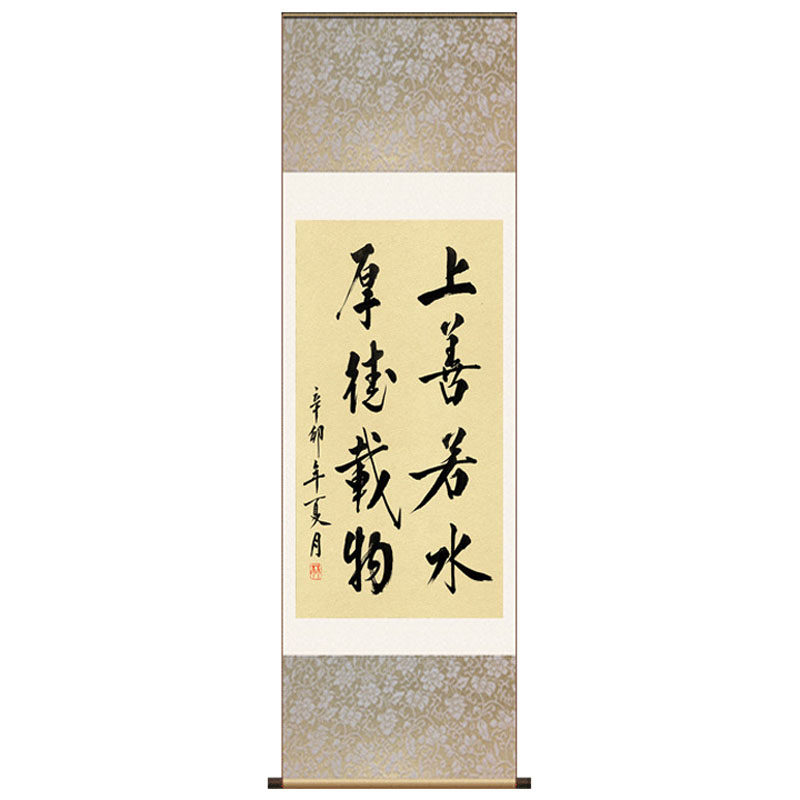 上善若水
厚德載物
辛卯年夏月